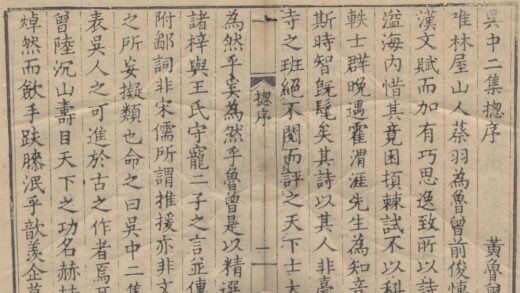 吳中二集揔序 黃魯曾
唯林屋山人蔡羽為魯曾前俊
漢文賦而加有巧思逸致所以詩
溢海内惜其竟困頓棘試不以科
軼士群晚遇霍渭涯先生為知音
斯時智旣髦矣其詩以其人非臺
寺之班絕不閱而評之天下士大
揔序 一
為然乎矣為然乎魯曾是以精選
諸梓與王氏守寵二子之言並傳
附鄙詞非宋儒所謂推援亦非文
之所妄擬類也命之曰吳中二集
表吳人之可進於古之作者焉耳
曾陸沉山壽目天下之功名赫
焯然而飲手趺膝泯乎歆羡企